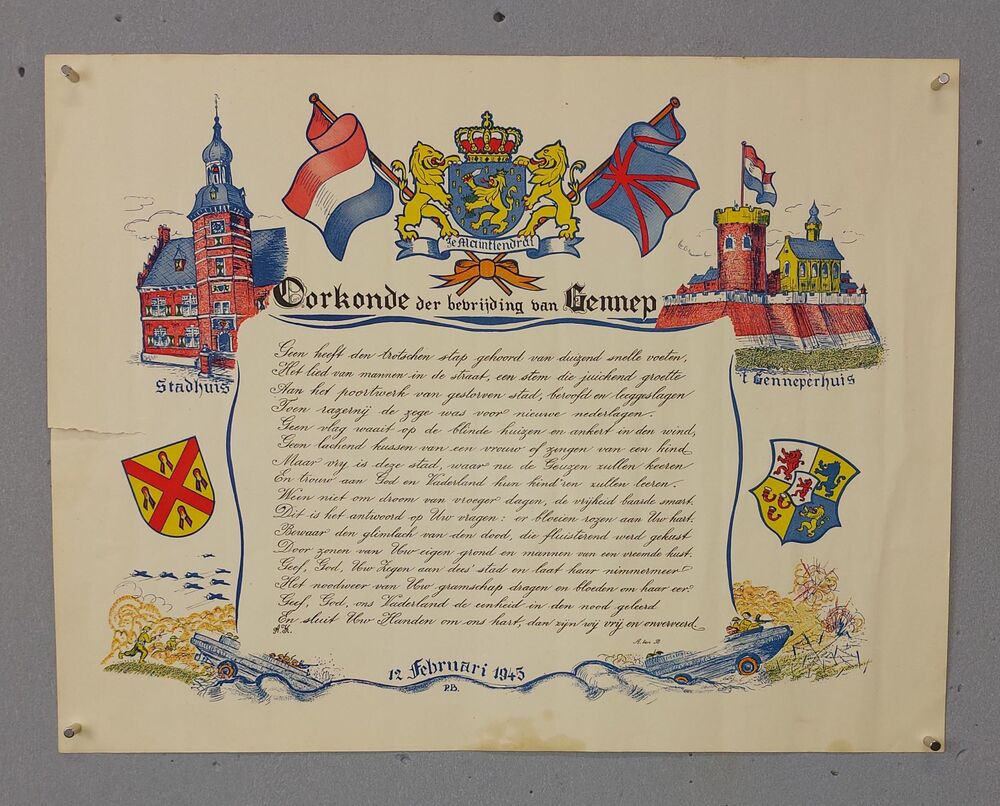 Je Maintiendrai
Oorkonde der bevrijding van Gennep
Stadhuis
't Genneperhuis
Geen heeft den trotschen stap gehoord van duizend snelle voeten,
Het lied van mannen in de straat, een stem die juichend groette
Aan het poortwerk van gestorven stad, beroofd en leeggeslagen
Toen razernij de zege was voor nieuwe nederlagen.
Geen vlag waait op de blinde huizen en ankert in den wind,
Geen lachend kussen van een vrouw of zingen van een kind
Maar vry is deze stad, waar nu de Geuzen zullen keeren
En trouw aan God en Vaderland hun kind'ren zullen leeren.
Wein niet om droom van vroeger dagen, de vrijheid baade smart.
Dit is het antwoord op Uw vragen: er bloeien rozen aan Uw hart.
Bewaar den glimlach van den dood, die fluisterend werd gekust
Door zonen van Uw eigen grond en mannen van een vreemde kust.
Geef, God, Uw Zegen aan dees' stad en laat haar nimmermeer
Het noodweer van Uw gramschap dragen en bloeden om haar eer.
Geef, God, ons Vaderland de eenheid in den nood geleerd
En sluit Uw Handen om ons hart, dan zijn wij vrij en onverveerd
12 Februari 1945
P.B.